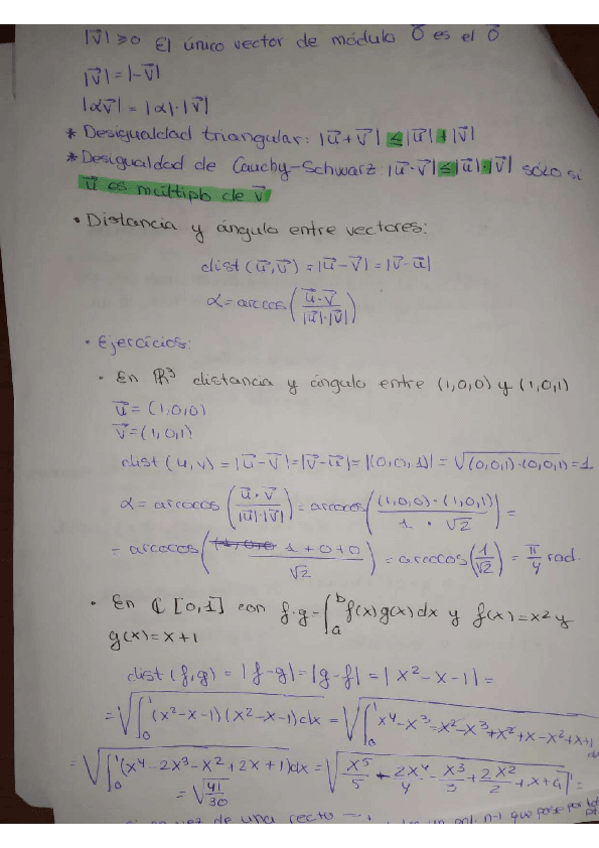 |v⃗| ⩾ 0 El único vector de módulo 0⃗ es el 0⃗
|v⃗| = |-v⃗|
|αv⃗| = |α|·|v⃗|
* Desigualdad triangular: |u⃗+v⃗| ≤ |u⃗| + |v⃗|
* Desigualdad de Cauchy-Schwarz: |u⃗·v⃗| ≤ |u⃗|·|v⃗| sólo si
u⃗ es múltiplo de v⃗
· Distancia y ángulo entre vectores:
dist (u⃗,v⃗) = |u⃗-v⃗| = |v⃗-u⃗|
α = arccos (u⃗·v⃗ / |u⃗|·|v⃗|)
· Ejercicios:
· En ℝ³ distancia y ángulo entre (1,0,0) y (1,0,1)
u⃗ = (1,0,0)
v⃗ = (1,0,1)
dist (u,v) = |u⃗-v⃗| = |v⃗-u⃗| = |(0,0,1)| = √(0,0,1)·(0,0,1) = 1
α = arcocos (u⃗·v⃗ / |u⃗|·|v⃗|) = arcocos ((1,0,0)·(1,0,1) / 1·√2) =
= arcocos (1+0+0 / √2) = arcocos (1/√2) = π/4 rad.
· En ℂ [0,1] con f·g = ∫ₐᵇ f(x)g(x)dx y f(x) = x² y
g(x) = x+1
dist (f,g) = |f-g| = |g-f| = |x²-x-1| =
= √∫₀¹ (x²-x-1)(x²-x-1)dx = √∫₀¹ x⁴-x³-x²-x³+x²+x-x²+x+1
= √∫₀¹ (x⁴-2x³-x²+2x+1)dx = √x⁵/5 - 2x⁴/4 - x³/3 + 2x²/2 + x
= √41/30
vez de una recto que pase por